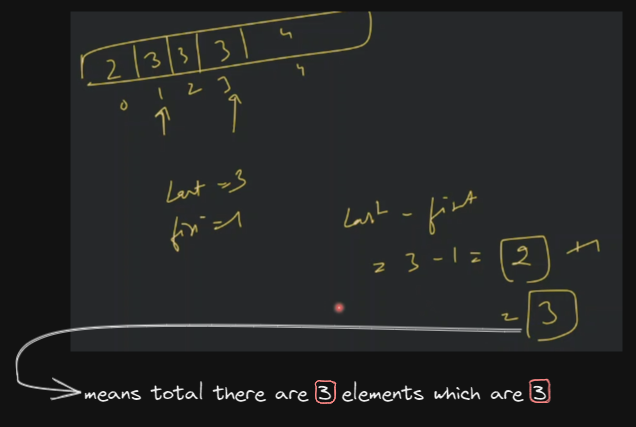 2 3 3 3 4
0 1 2 3 4
Last = 3
firs = 1
Last - first
= 3 - 1 = 2 +1
= 3
means total there are 3 elements which are 3